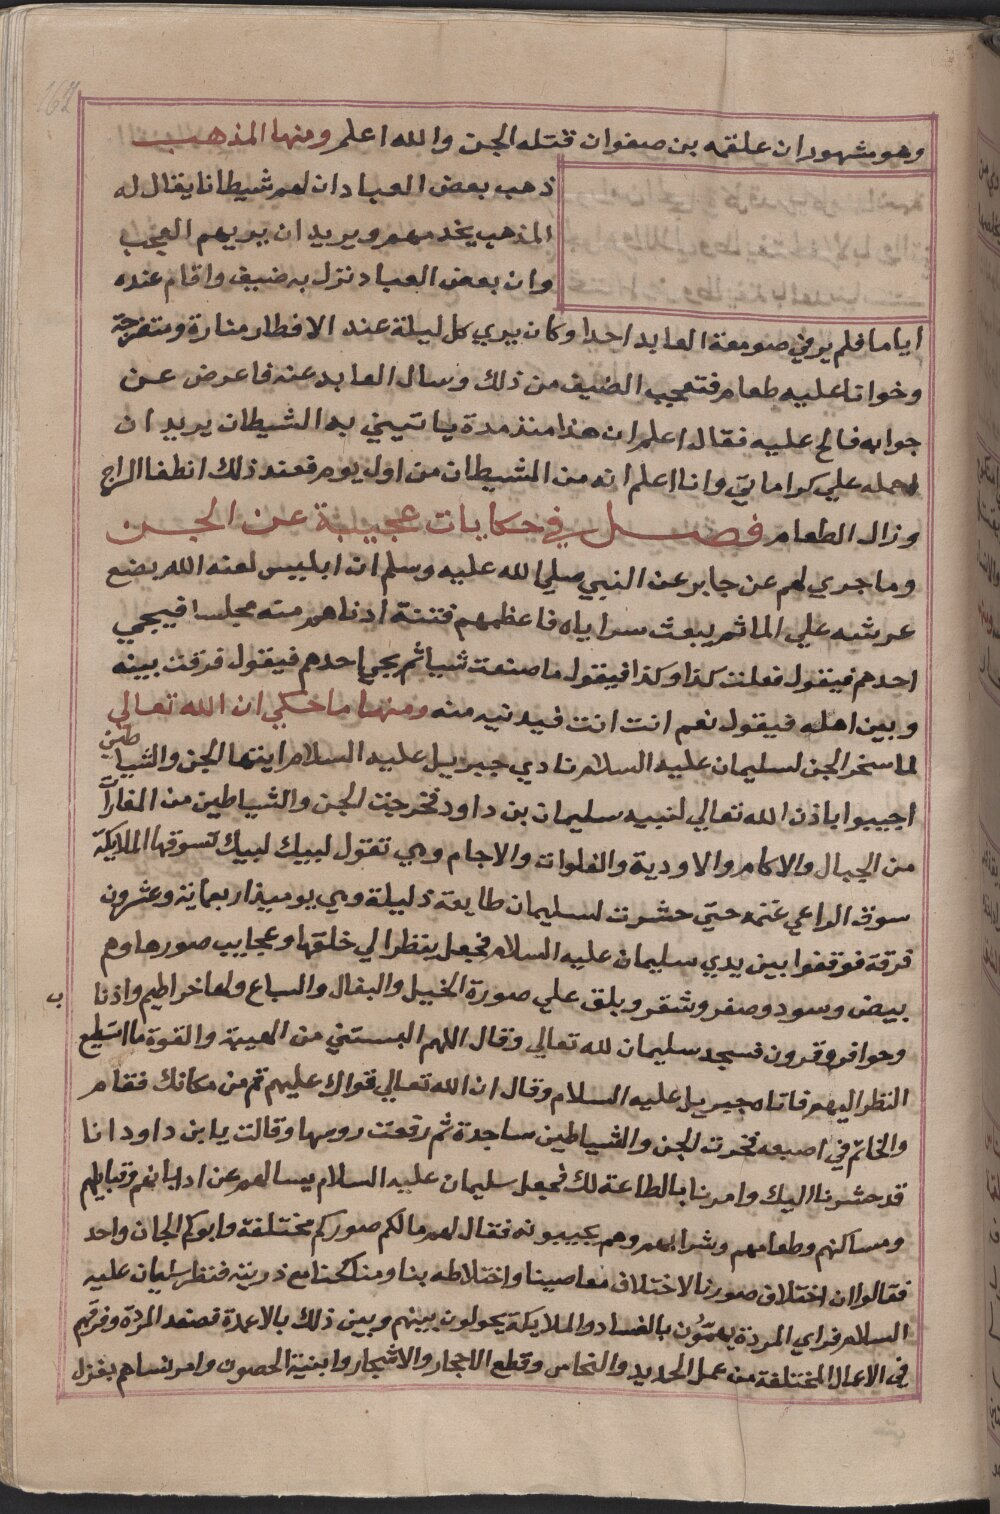 162
وهو مشهور ان علقمه بن صفوان قتله الجن والله اعلم ومنها المذهب
ذهب بعض العباد ان لهم شيطانا يقال له
المذهب يخدمهم ويريد ان يريهم العجب
وان بعض العباد نزل به ضيف واقام عنده
اياما فلم ير في صومعة العابد احدا وكان يري كل ليلة عند الافطار منارة ومتفرجة
وخوانا عليه طعام فتعجب الضيف من ذلك وسال العابد عنه فاعرض عن
جوابه فالح عليه فقال اعلم ان هذا منذ مدة ياتيني به الشيطان يريد ان
احمله علي كراماتي وانا اعلم انه من الشيطان من اول يوم فعند ذلك انطفا السراج
وزال الطعام فصل في حكايات عجيبة عن الجن
وما جري لهم عن جابر عن النبي صلي الله عليه وسلم ان ابليس لعنه الله يضع
عرشه علي الما ثم يبعث سراياه فاعظمهم فتنة ادناهم منه مجلسا فيجيي
احدهم فيقول فعلت كذا وكذا فيقول ما صنعت شيا ثم يجي احدهم فيقول فرقت بينه
وبين اهله فيقول نعم انت انت فيدنيه منه ومنها ما حكي ان الله تعالي
لما سخر الجن لسليمان عليه السلام نادي جبريل عليه السلام ايتها الجن والشياطين
اجيبوا باذن الله تعالي لنبيه سليمان بن داود فخرجت الجن والشياطين من المغارات
من الجبال والاكام والاودية والفلوات والاجام وهي تقول لبيك لبيك تسوقها الملايكة
سوق الراعي غنمه حتي حشرت لسليمان طايعة ذليلة وهي يوميذ اربعماية وعشرون
فرقة فوقفوا بين يدي سليمان عليه السلام فجعل ينظر الي خلقها وعجايب صورها وهم
بيض وسود وصفر وشقر وبلق علي صورة الخيل والبغال والسباع ولها خراطيم واذنا
ب
وحوافر وقرون فسجد سليمان لله تعالي وقال اللهم البسني من الهيبة والقوة ما استطيع
النظر اليهم فاتاه جبريل عليه السلام وقال ان الله تعالي قواك عليهم قم من مكانك فقام
والخاتم في اصبعه فخرت الجن والشياطين ساجدة ثم رفعت روسها وقالت يا بن داود انا
قد حشرنا اليك وامرنا بالطاعة لك فجعل سليمان عليه السلام يسالهم عن اديانهم وقبايلهم
ومساكنهم وطعامهم وشرابهم وهم يجيبونه فقال لهم مالكم صوركم مختلفة وابوكم الجان واحد
فقالوا ان اختلاف صورنا لاختلاف معاصينا واختلاطه بنا ومناكحتنا مع ذريته فنظر سليمان عليه
السلام فراي المردة يهمون بالفساد والملايكة يحولون بينهم وبين ذلك بالاعمدة فصفد المردة وفرقهم
في الاعمال المختلفة من عمل الحديد والنحاس وقطع الاحجار والاشجار وابنية الحصون وامر نساهم بغزل